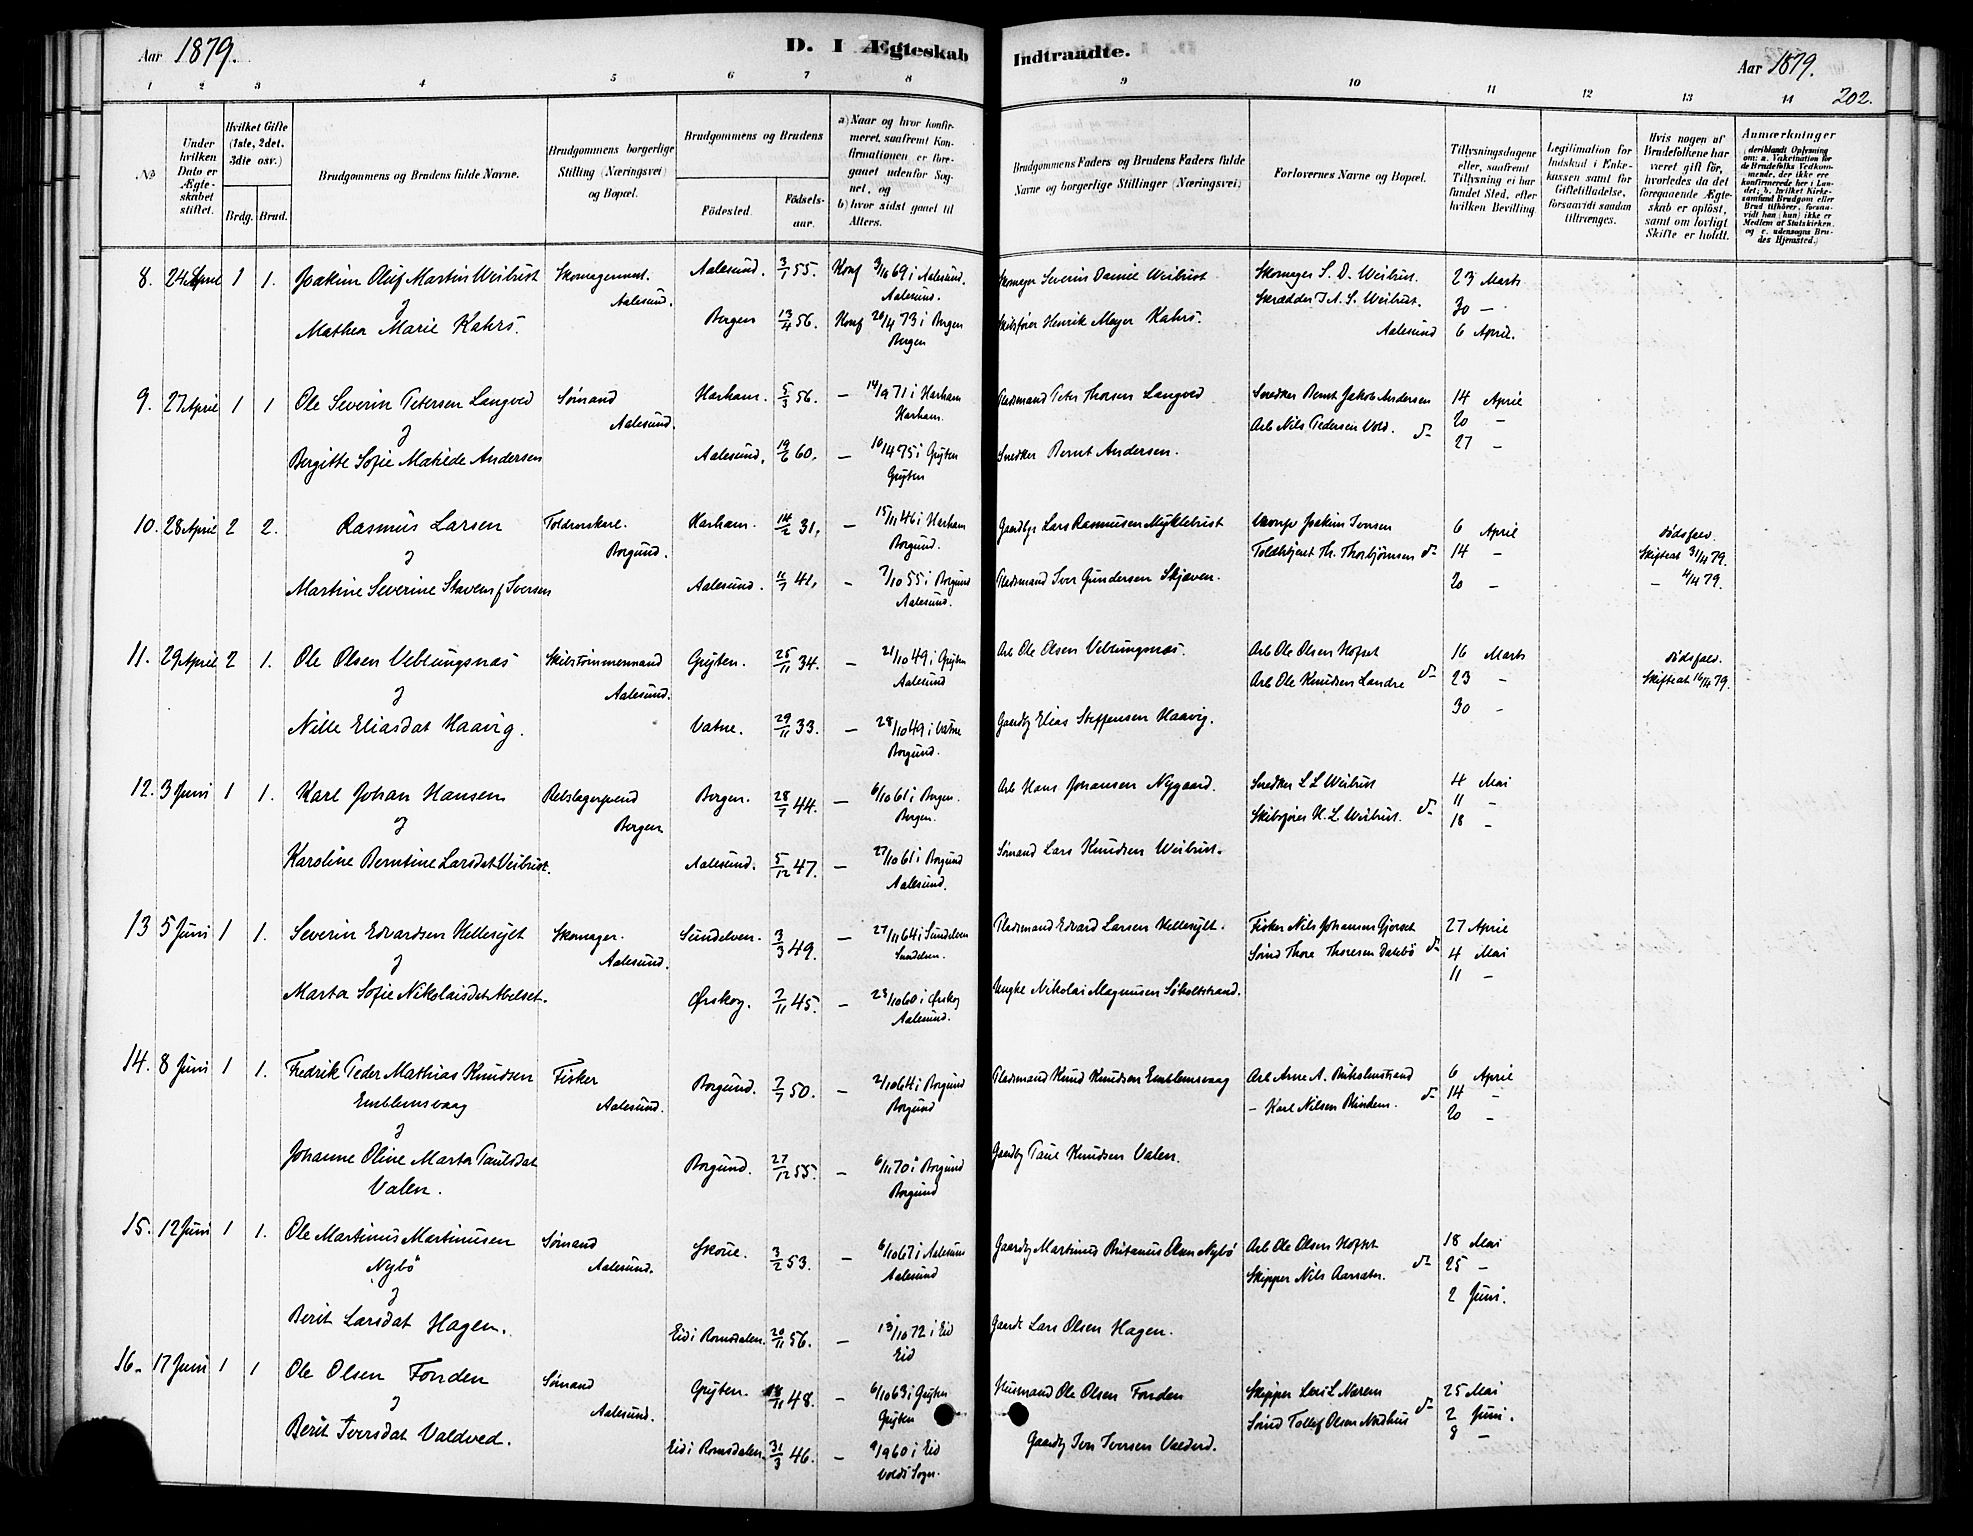 Aar 1879.
D. I Ægteskab Indtraadte.
Aar 1879.
202.
1 2 3 4 5 6 7 8 9 10 11 12 13 14
No
Under hvilken Dato er Ægteskabet stiftet.
Hvilket Gifte (1ste, 2det, 3die osv.)
Brdg. Brud.
Brudgommens og Brudens fulde Navne.
Brudgommens borgerlige Stilling (Næringsvei) og Bopæl.
Brudgommens og Brudens
Fødested.
Fødselsaar.
a) Naar og hvor konfirmeret, saafremt Konfirmationen er foregaaet udenfor Sognet, og
b) hvor sidst gaaet til Alters.
Brudgommens Faders og Brudens Faders fulde Navne og borgerlige Stillinger (Næringsvei)
Forlovernes Navne og Bopæl.
Tillysningsdagene eller, saafremt Tillysning ei har fundet Sted, efter hvilken Bevilling
Legitimation for Indskud i Enkekassen samt for Giftetilladelse, forsaavidt saadan tiltrænges.
Hvis nogen af Brudefolkene har været gift før, hvorledes da det foregaaende Ægteskab er opløst, samt om lovligt Skifte er holdt.
Anmærkninger
8. 24 April 1 1. Joakim Oluf Martin Weibust Skomagermst. Aalesund. 3/1 55. Konf 3/10 69 i Aalesund. Skomager Severin Daniel Weibust Skomager S. D. Weibust. 23 Marts
& Aalesund. Aalesund. Skrædder J. A. S. Weibust. 30 –
Mathea Marie Kahrs. Bergen 13/4 56. Konf 20/4 73 i Bergen Skibsfører Henrik Meyer Kahrs. Aalesund 6 April.
Bergen
9. 27 April 1 1 Ole Severin Petersen Langved Sømand Harham. 5/3 56. – 14/9 71 i Harham Pladsmand Peter Thorsen Langved Snedker Bernt Jakob Andersen 14 April
& Aalesund. Harham. Arb Nils Pedersen Vold. do 20 –
Bergitte Sofie Matilde Andersen Aalesund. 19/6 60. – 10/4 75 i Grÿten Snedker Bernt Andersen. 27 –
Grÿten
10. 28 April 2 2. Rasmus Larsen Toldrorskarl. Harham. 14/2 31. – 15/11 46 i Harham Gaardbr Lars Rasmussen Myklebust Joakim Iversen 6 April Dødsfald.
& Borgund. Borgund. Toldbetjent Th. Thorbjørnsen do 14 – Skifteat 31/4 79.
Martine Severine Stavens f Iversen Aalesund. 11/7 41. – 7/10 55 i Borgund Pladsmand Iver Gundersen Skjeven. 20 – – 4/4 79.
Aalesund.
11. 29 April 2 1. Ole Olsen Veblungsnæs Skibstømmermand Grÿten. 25/11 34. – 21/10 49 i Grÿten Arb Ole Olsen Veblungsnæs. Arb Ole Olsen Hofset 16 Marts Dødsfald.
& Aalesund. Aalesund Arb Ole Knudsen Landre do 23 – Skifteat 16/4 79.
Nille Eliasdat Haavig. Vatne. 29/11 33. – 28/10 49 i Vatne Gaardbr Elias Steffensen Haavig. 30 –
Borgund.
12. 3 Juni 1 1. Karl Johan Hansen Rebslagersvend Bergen. 28/7 44. – 6/10 61 i Bergen. Arb Hans Johansen Nygaard. Snedker L L Weibust 4 Mai
& Bergen Bergen. Skibsfører H. L. Weibust. do 11 –
Karoline Berntine Larsdat Veibust. Aalesund. 5/12 47. – 27/10 61 i Borgund Sømand Lars Knudsen Weibust. 18 –
Aalesund.
13 5 Juni 1 1. Severin Edvardsen Hellesylt Skomager. Sundelven. 3/3 49. – 27/11 64 i Sundelven Pladsmand Edvard Larsen Hellesylt. Fisker Nils Johansen Gjerset 27 April
& Aalesund. Sundelven. Sømd Thore Thoresen Dalebø do 4 Mai
Marta Sofie Nikolaisdat Abelset. Ørskog. 7/11 45. – 28/10 60 i Ørskog Nikolai Magnussen Søholtstrand. 11 –
Aalesund.
14. 8 Juni 1 1. Fredrik Peder Mathias Knudsen Fisker Borgund. 7/7 50. – 2/10 64 i Borgund Pladsmand Knud Knudsen Emblemsvaag Arb Arne A. Buholmstrand 6 April
Emblemsvaag Aalesund. Borgund – Karl Nilsen Blindem. do 14 –
& 20 –
Johanne Oline Marta Paulsdat Borgund. 27/12 55. – 6/11 70 i Borgund Gaardbr Paul Knudsen Valen.
Valen. Borgund
15. 12 Juni 1 1. Ole Martinus Martinusen Sømand Skoue. 3/2 53. – 6/10 67 i Aalesund Gaardbr Martinus Britanus Olsen Nybø Arb Ole Olsen Hofset 18 Mai
Nybø Aalesund. Aalesund Skipper Nils Aarsæter. do 25 –
& 2 Juni.
Berit Larsdat Hagen. Eid i Romsdalen. 20/11 56. – 13/10 72 i Eid Gaardbr Lars Olsen Hagen.
Eid
16. 17 Juni 1 1 Ole Olsen Fonden Sømand Grÿten. 18/11 48. – 6/10 63 i Grÿten Husmand Ole Olsen Fonden Skipper Lars L Nerem 25 Mai
& Aalesund. Grÿten Sømd Tollef Olsen Nedhus do 2 Juni.
Berit Iversdat Valdved. Eid i Romsdalen. 31/3 46. – 9/9 60 i Eid Gaardbr Iver Iversen Valdved. 8 –
Volds Sogn.